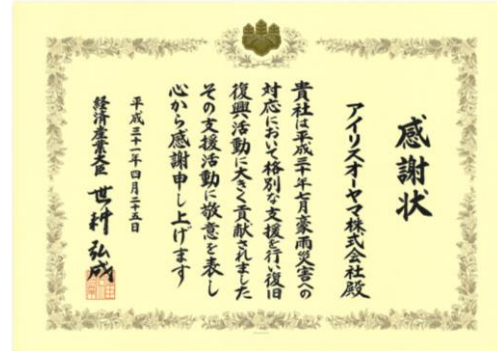 感謝状
アイリスオーヤマ株式会社殿
貴社は平成三十年七月豪雨災害への
対応において格別な支援を行い復旧
復興活動に大きく貢献されました
その支援活動に敬意を表し
心から感謝申し上げます
平成三十一年四月二十五日
経済産業大臣 世耕弘成